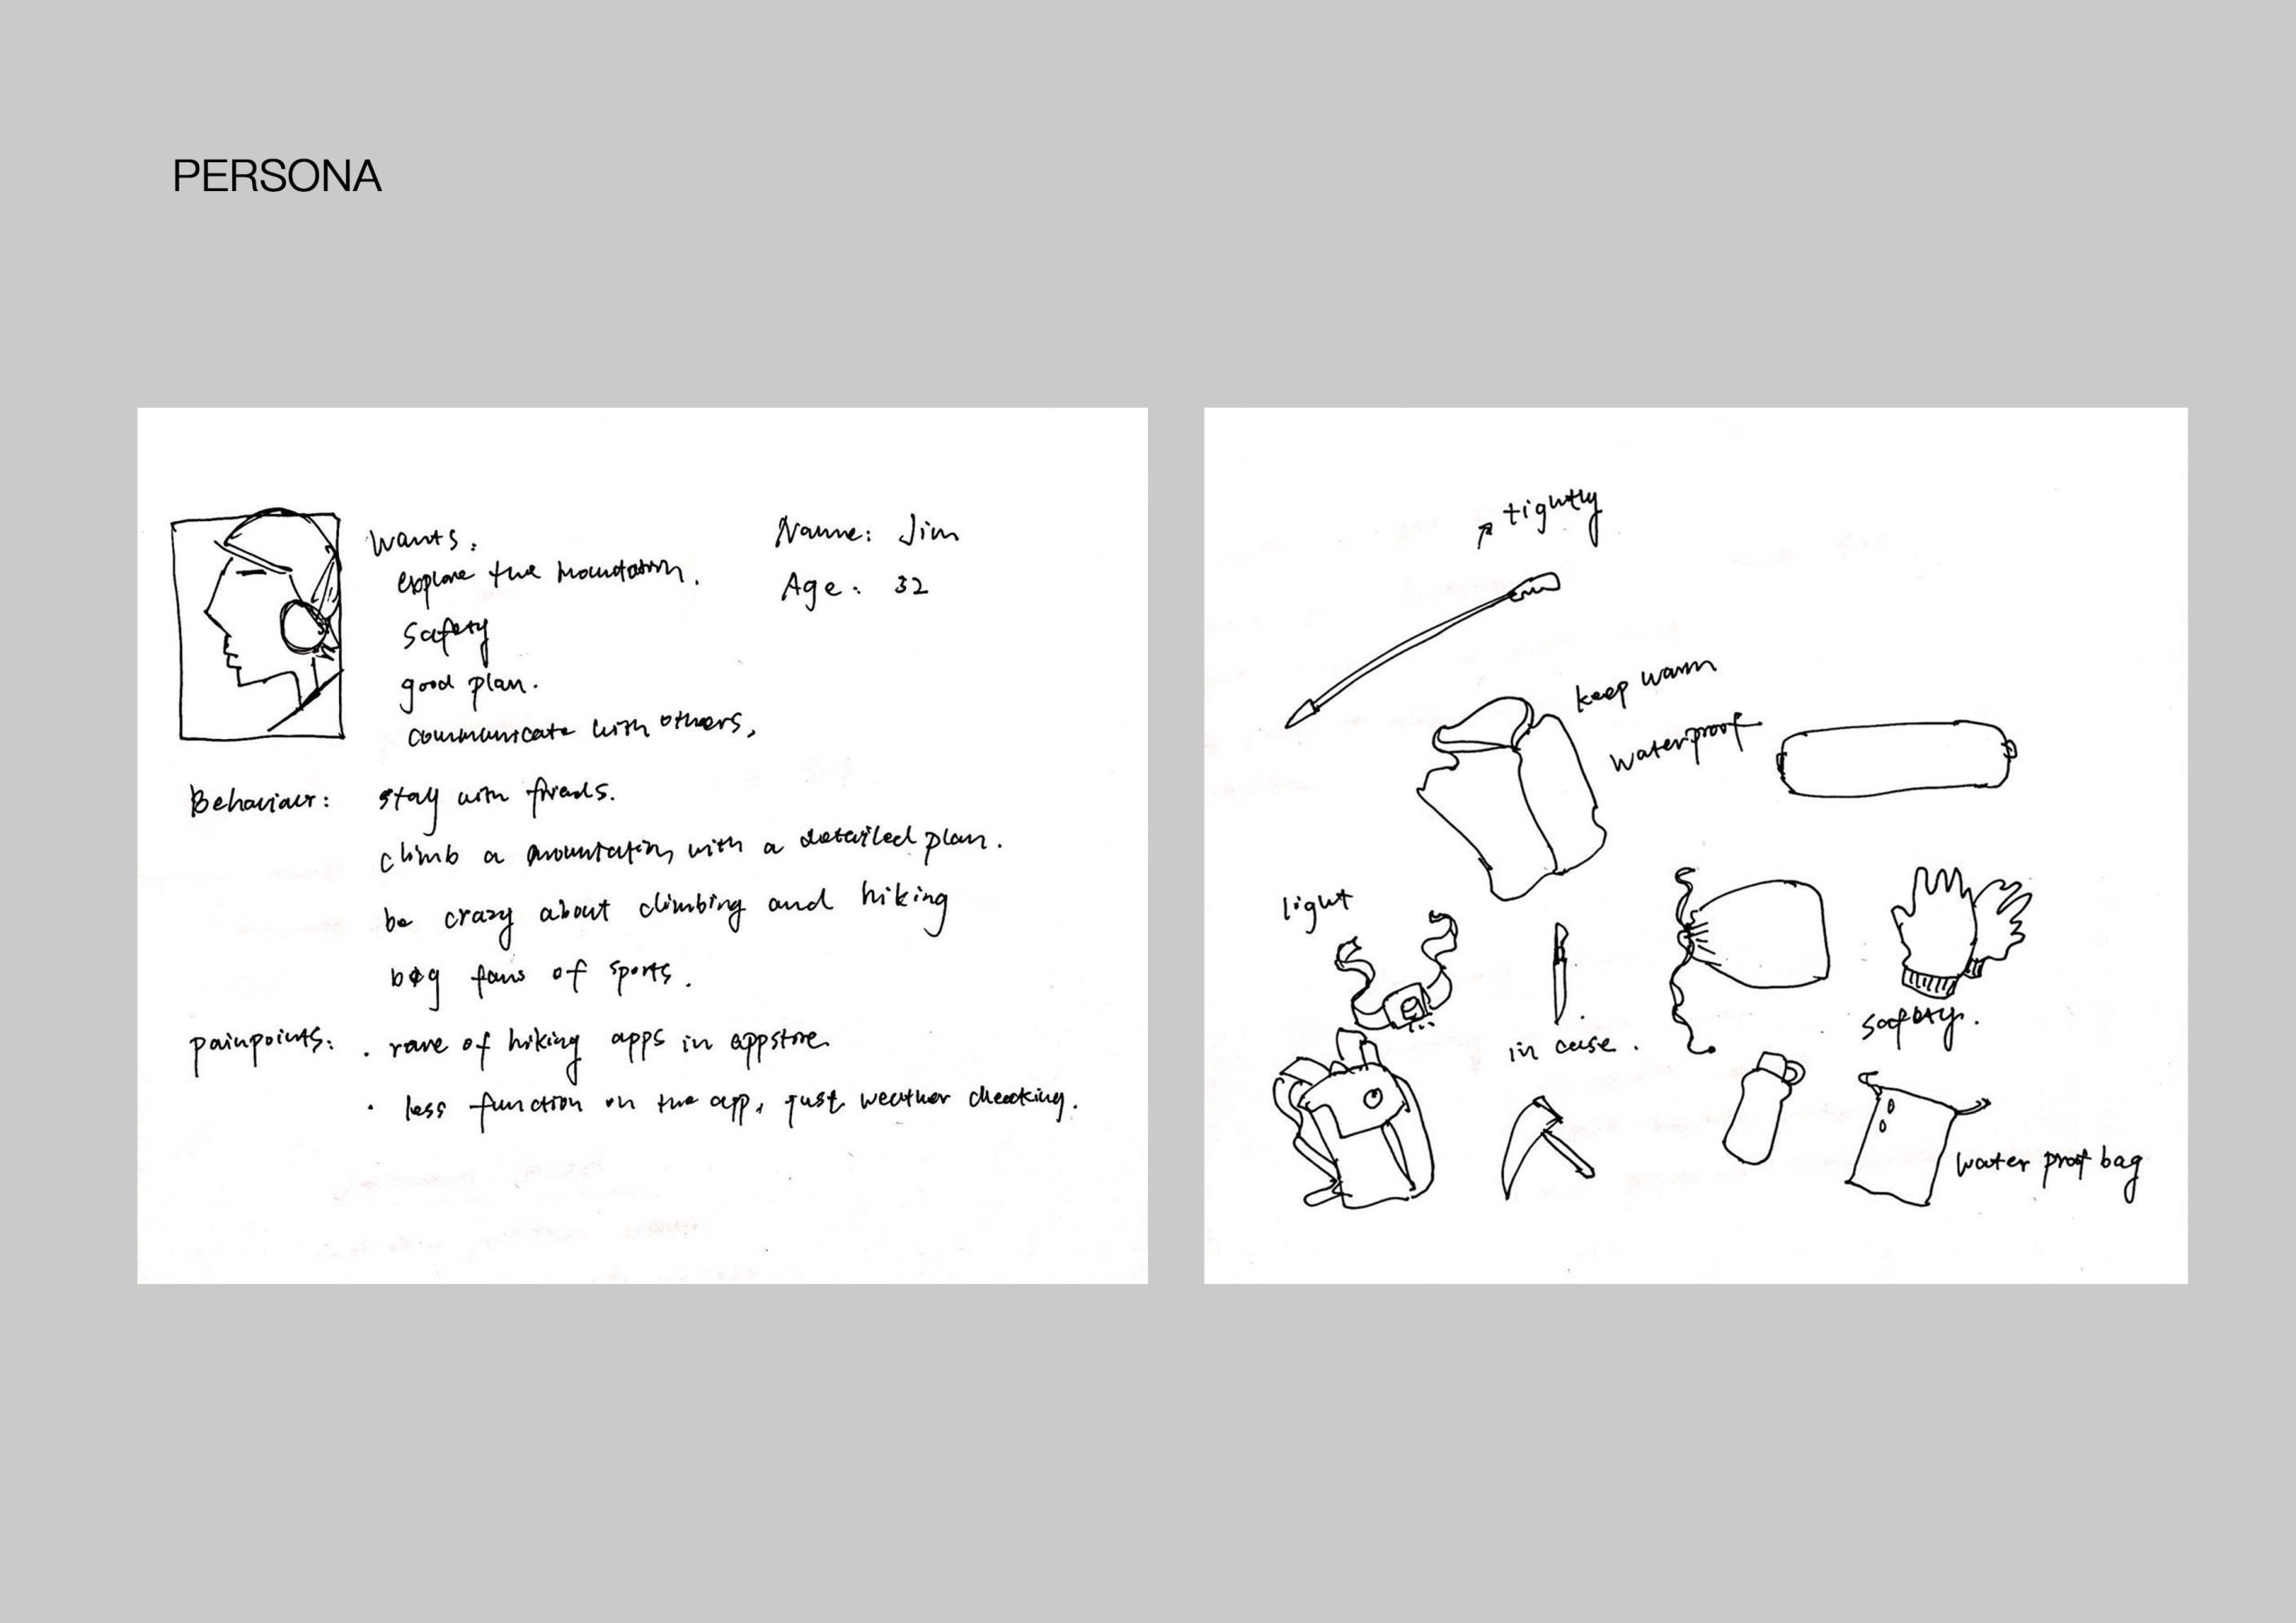 PERSONA
wants:
explore the mountain.
safety
good plan.
communicate with others.
Name: Jim
Age: 32
Behaviour: stay with friends.
climb a mountain with a detailed plan.
be crazy about climbing and hiking
big fans of sports.
painpoints: · rare of hiking apps in appstore
· less function on the app, just weather checking.
tightly
keep warm
waterproof
light
in case.
safety.
water proof bag